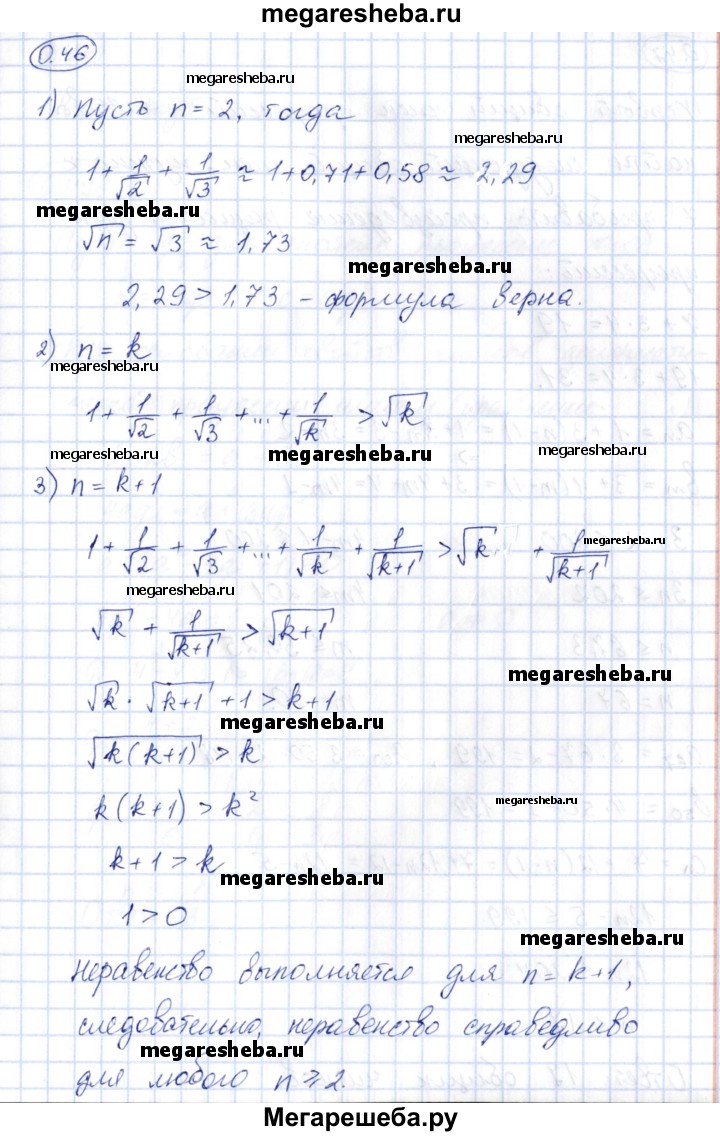 megaresheba.ru
0.46
megaresheba.ru
1) Пусть n = 2, тогда
megaresheba.ru
1 + 1/√2 + 1/√3 ≈ 1+0,71+0,58 ≈ 2,29
megaresheba.ru
√n = √3 ≈ 1,73
megaresheba.ru
2,29 > 1,73 – формула верна.
2) n = k
megaresheba.ru
1 + 1/√2 + 1/√3 + ... + 1/√k > √k
megaresheba.ru
megaresheba.ru
megaresheba.ru
3) n = k+1
1 + 1/√2 + 1/√3 + ... + 1/√k + 1/√(k+1) > √k + 1/√(k+1)
megaresheba.ru
megaresheba.ru
√k + 1/√(k+1) > √(k+1)
megaresheba.ru
√k · √(k+1) + 1 > k+1
megaresheba.ru
√(k(k+1)) > k
k(k+1) > k²
megaresheba.ru
k+1 > k
megaresheba.ru
1 > 0
Неравенство выполняется для n = k+1,
следовательно, неравенство справедливо
megaresheba.ru
для любого n ≥ 2.
Мегарешеба.ру